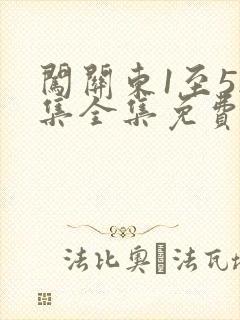 闖關東1至5
集全集免費
法比奧·法瓦